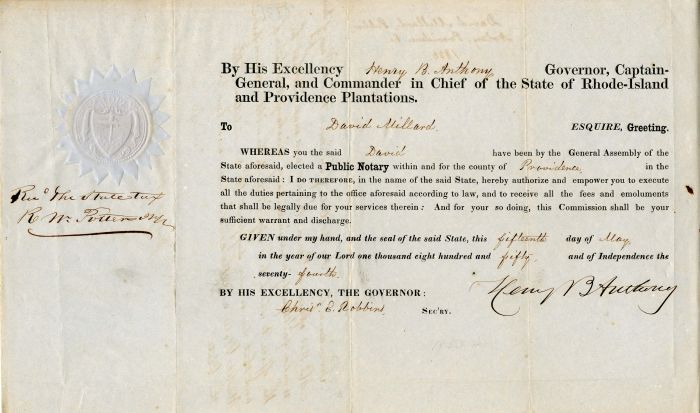 By His Excellency Henry B. Anthony, Governor, Captain-
General, and Commander in Chief of the State of Rhode-Island
and Providence Plantations.
To David Millard. ESQUIRE, Greeting.
WHEREAS you the said David have been by the General Assembly of the
State aforesaid, elected a Public Notary within and for the county of Providence, in the
State aforesaid: I DO THEREFORE, in the name of the said State, hereby authorize and empower you to execute
all the duties pertaining to the office aforesaid according to law, and to receive all the fees and emoluments
that shall be legally due for your services therein: And for your so doing, this Commission shall be your
sufficient warrant and discharge.
GIVEN under my hand, and the seal of the said State, this fifteenth day of May
in the year of our Lord one thousand eight hundred and fifty, and of Independence the
seventy-fourth.
BY HIS EXCELLENCY, THE GOVERNOR: Henry B Anthony
Chris. E. Robbins SEC'RY.
Recd The State tax
R. W.